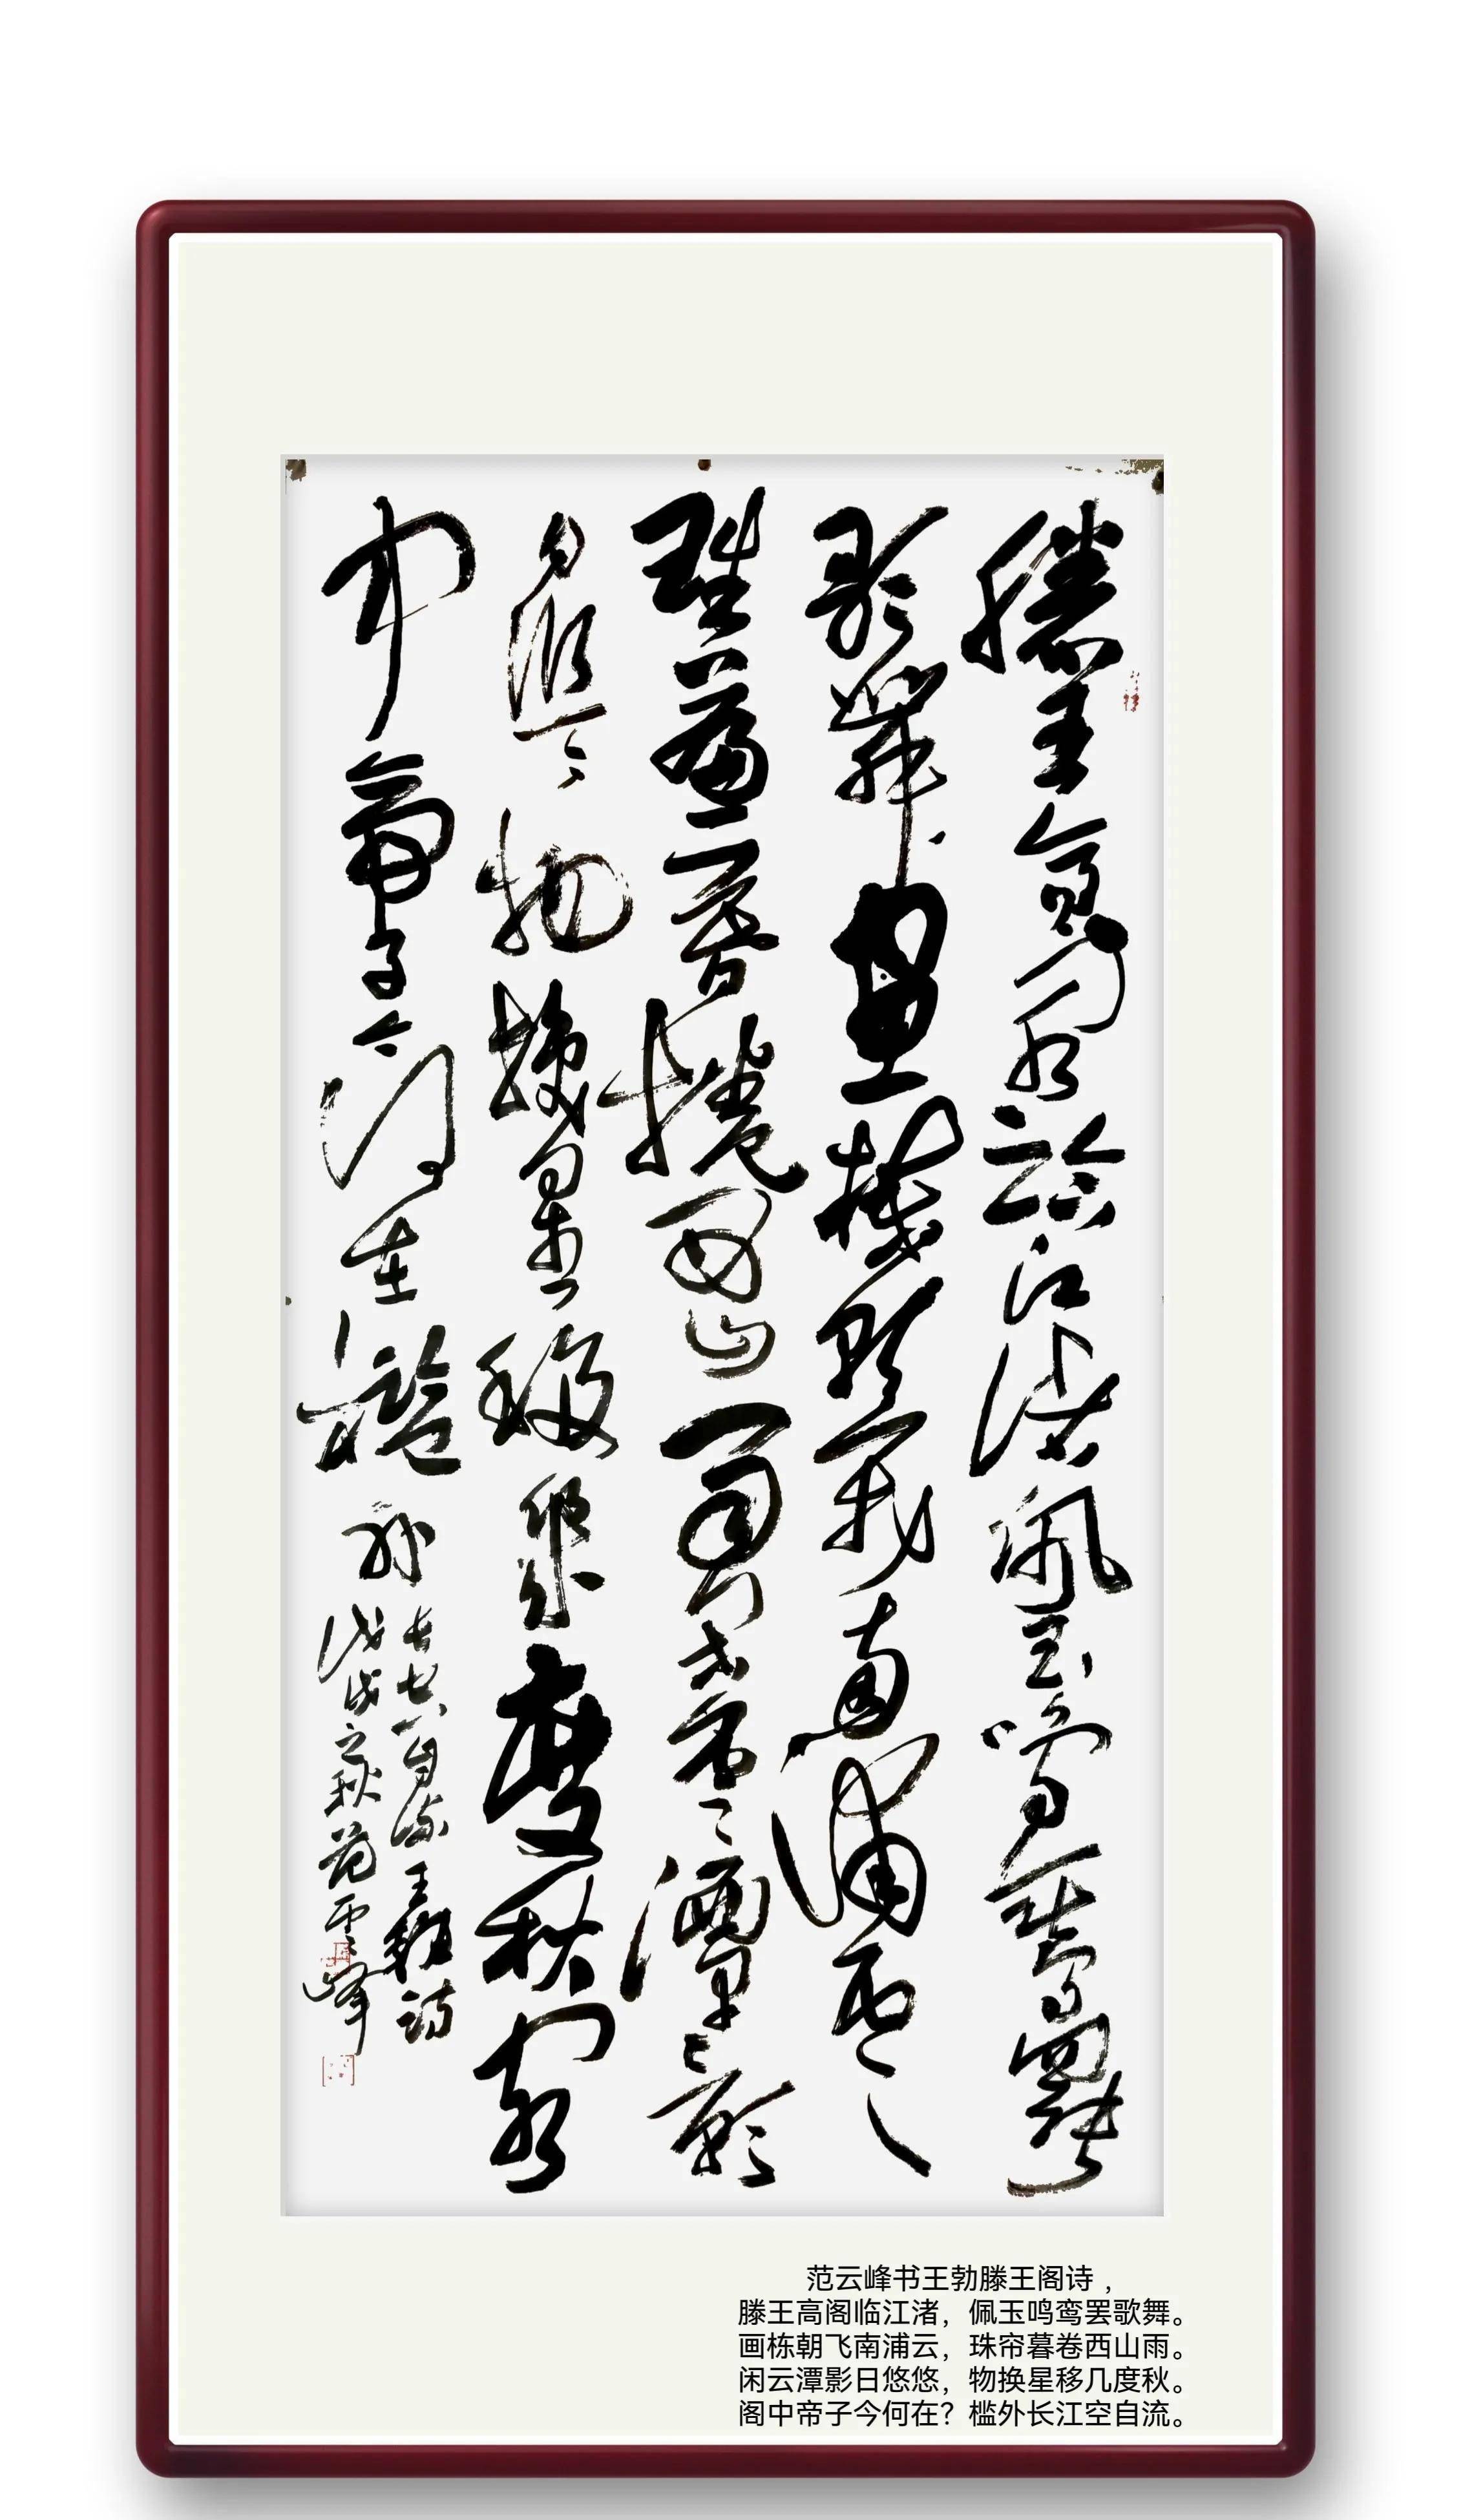 滕王高阁临江渚佩玉鸣鸾罢
歌舞画栋朝飞南浦云
珠帘暮卷西山雨闲云潭影
日悠々物换星移几度秋阁
中帝子今何在槛外
长江空自流王勃诗
戊戌之秋范云峰
范云峰书王勃滕王阁诗，
滕王高阁临江渚，佩玉鸣鸾罢歌舞。
画栋朝飞南浦云，珠帘暮卷西山雨。
闲云潭影日悠悠，物换星移几度秋。
阁中帝子今何在？槛外长江空自流。